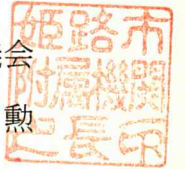 会
勲
姫路市
附属機関
之長印